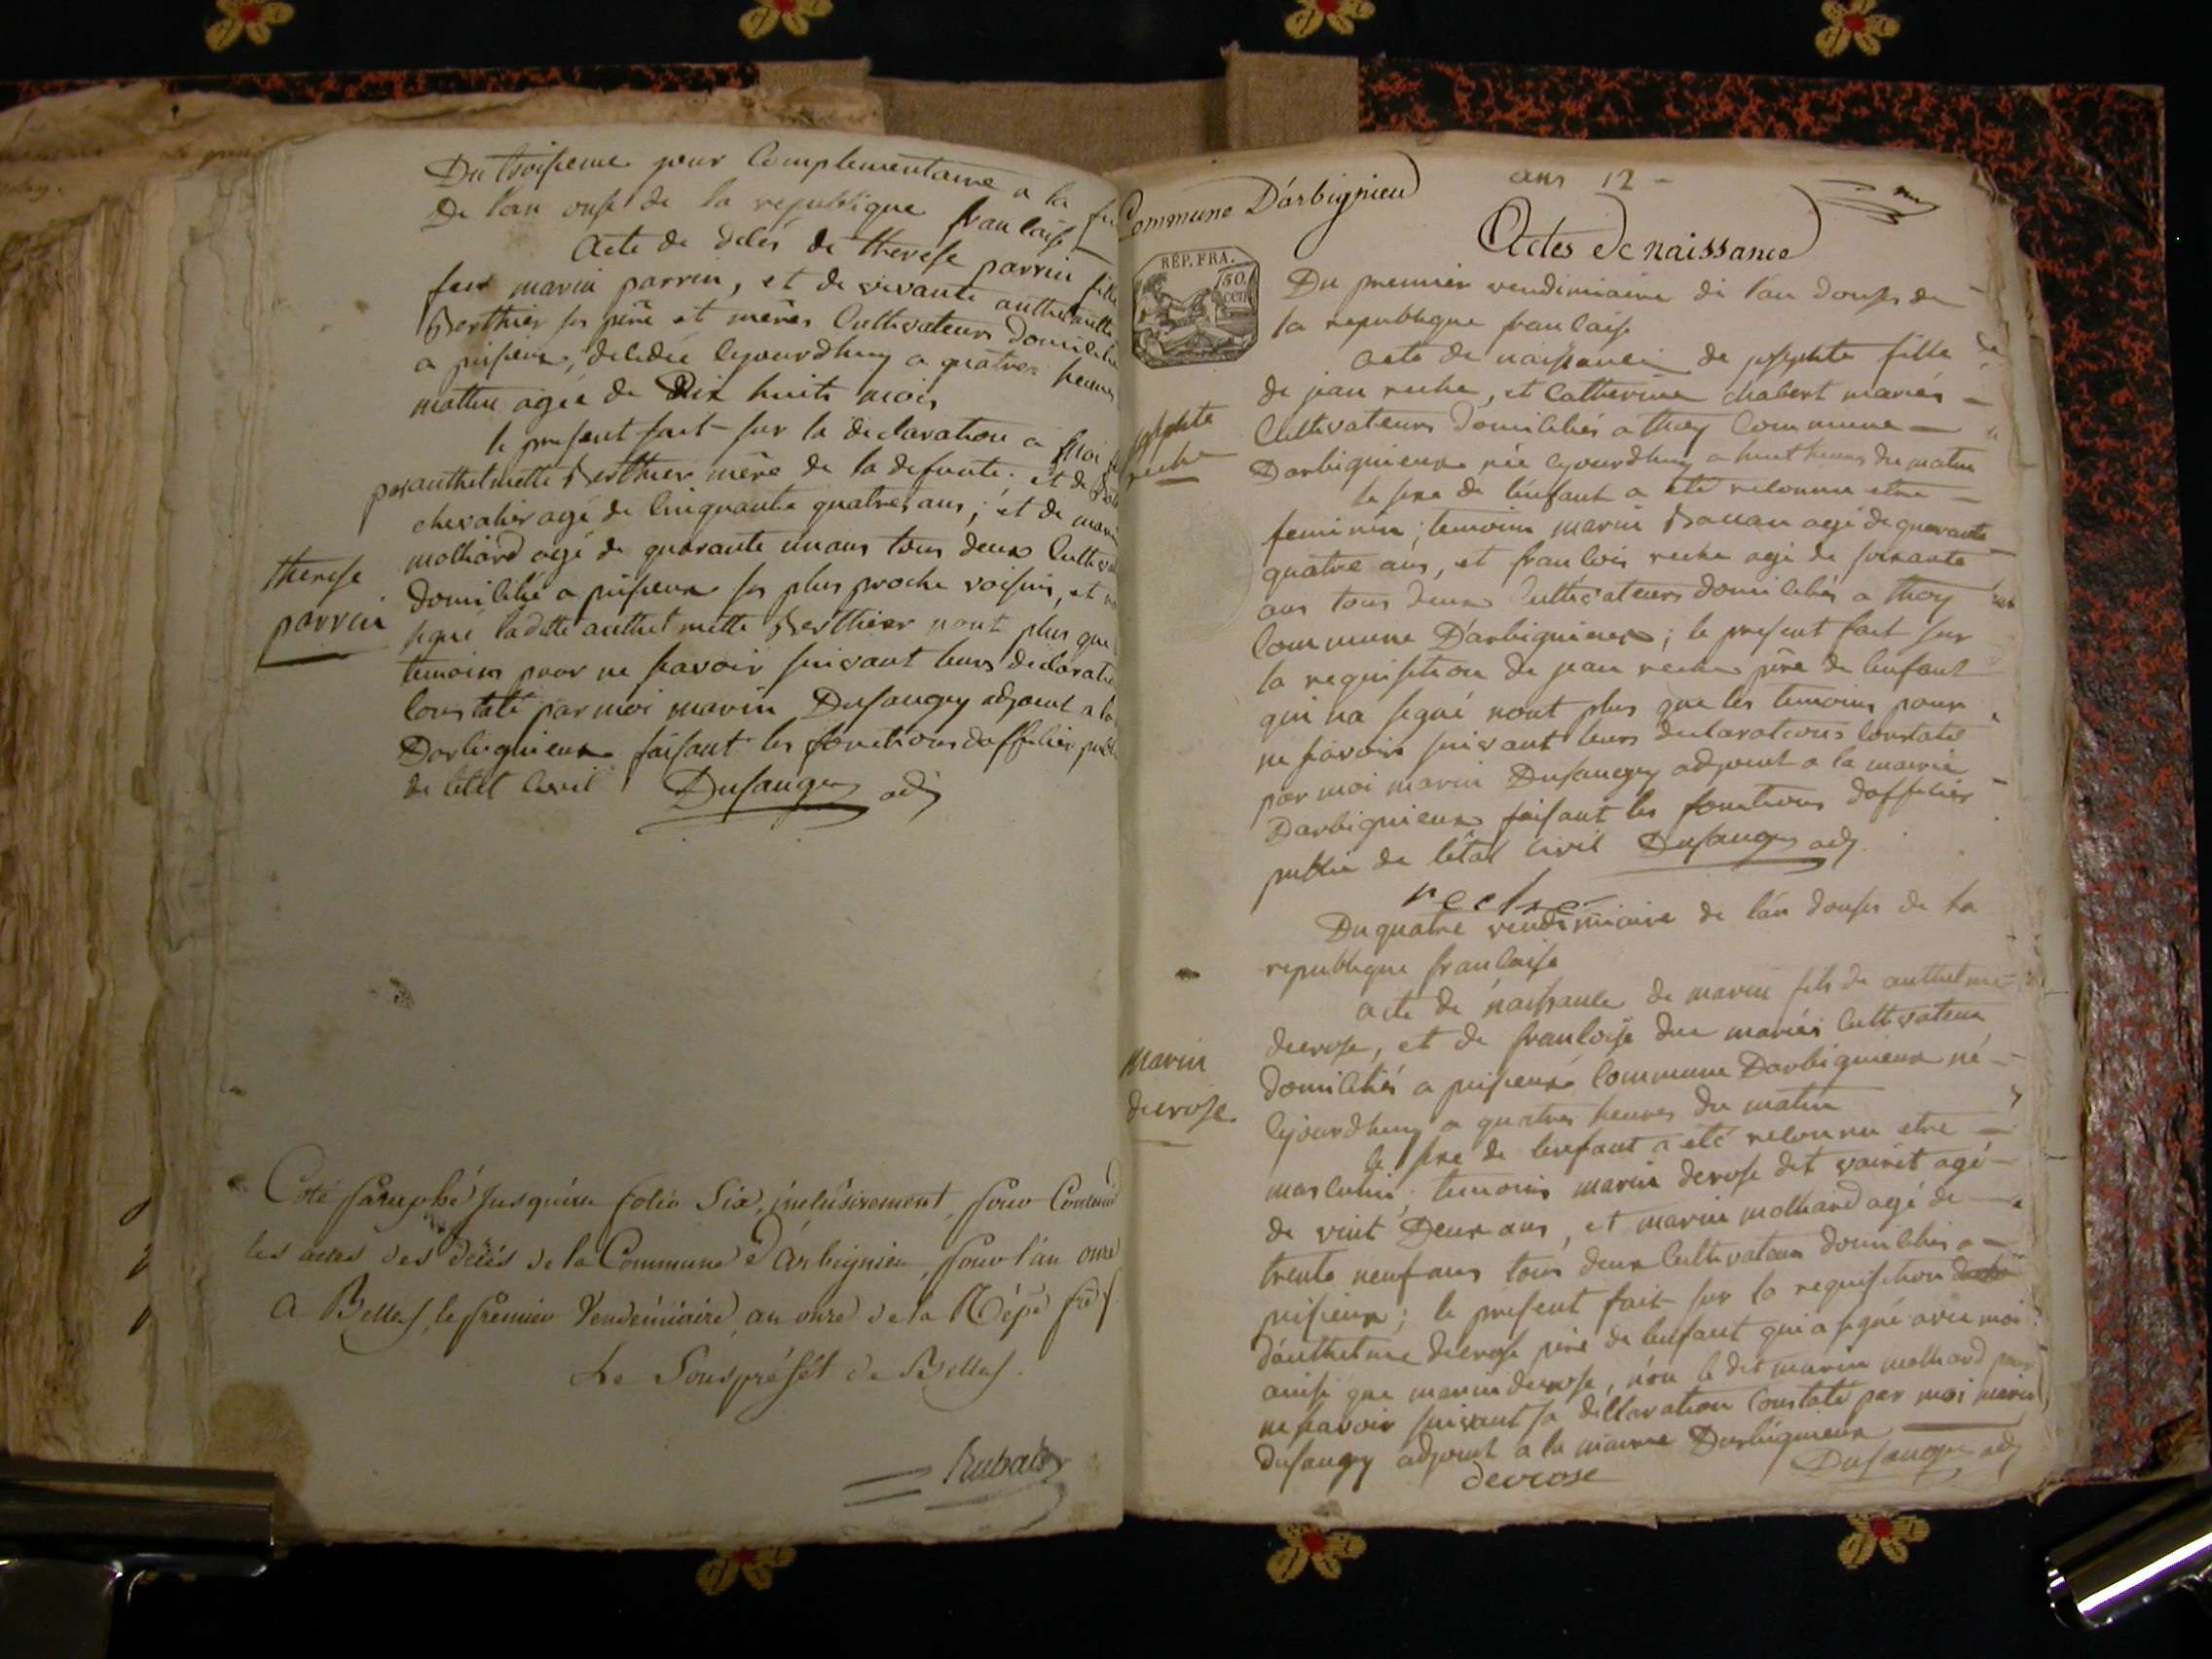 Du troisieme jour Complementaire a la
De l'an onse de la republique francaise
acte de décés de therese parrin fille
feu marin parrin, et de vivante anthelmette
Berthier ses père et mères Cultivateurs domicilié
a pisieux, décédée cejourdhuy a quatres heures
mattin agée de Dix huits mois
le present fait sur la declaration a moi
par anthelmette Berthier mère de la defunte. et de
chevalier agé de Cinquante quatres ans; et de marin
molliard agé de quarante un ans tous deux Cultivat
domicilié a pisieux ses plus proche voisins, et n
signé laditte anthelmette Berthier nont plus que
temoins pour ne savoir suivant leurs declaratio
Constaté par moi marin Dusaugey adjoint a la
Darbignieux faisant les fonctions dofficier publi
de letat civil Dusaugey adj
therese
parrin
Coté Paraphé jusqu'au folio Six, inclusivement, pour Contenir
les actes des décés de la Commune d'Arbignieu, pour l'an onze
A Belley, le premier Vendémiaire, an onze de la Rép. fr.
Le Souspréfét de Belley.
Rubat
Commune D'arbignieu
ans 12
Actes de naissance
RÉP. FRA.
50
cen
Du premier vendimiaire de l'an douses de
la republique francaise
acte de naissance de josephte fille
de jean reche, et Catherine chabert mariés
Cultivateurs domiciliés a thoy Commune
Darbignieux née cejourdhuy a huit heures du matin
le sexe de l'enfant a été reconnu etre
feminin; temoins marin agé de quarante
quatre ans, et francois reche agé de soixante
ans tous deux Cultivateurs domiciliés a thoy
Commune D'arbignieux; le present fait sur
la requisition de jean reche père de lenfant
qui na signé nont plus que les temoins pour
ne savoir suivant leurs declarations Constaté
par moi marin Dusaugey adjoint a la mairie
Darbignieux faisant les fonctions dofficier
public de létat civil Dusaugey adj.
reche
josephte
reche
Du quatre vendimiaire de l'an douses de la
republique francaise
acte de naissance de marin fils de anthelme
decrose, et de francoise duc mariés Cultivateur
domiciliés a pisieux Commune Darbignieux né
cejourdhuy a quatres heures du matin
le sexe de lenfant a été reconnu etre
masculin; temoins marin decrose dit vairet agé
de vint Deux ans, et marin molliard agé de
trente neuf ans tous deux Cultivateurs domiciliés a
pisieux; le present fait sur la requisition
d'anthelme decrose père de lenfant qui a signé avec moi
ainsi que marin decrose, nón le dit marin molliard pour
ne savoir suivant sa declaration Constaté par moi marin
Dusaugey adjoint a la mairie Darbignieux
decrose Dusaugey adj
marin
decrose